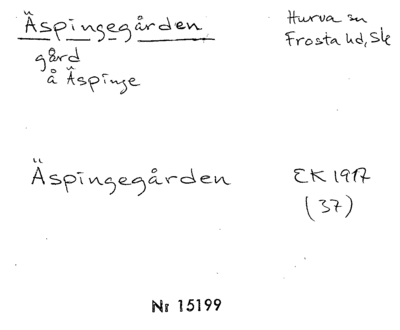 Äspingegården
Hurva sn
Frosta hd, Sk
gård
å Äspinge
Äspingegården
EK 1917
(37)
Nr 15199